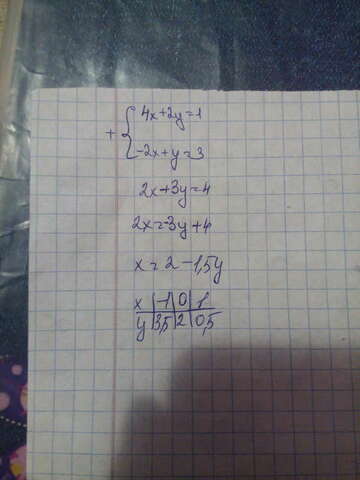 + { 4x+2y=1
-2x+y=3
2x+3y=4
2x=-3y+4
x=2-1,5y
x | -1 | 0 | 1
y | 3,5 | 2 | 0,5